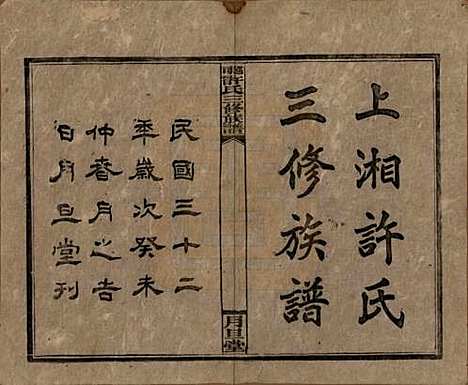 上湘許氏
三修族譜
許氏三修族譜
月旦堂
民國三十二
年歲次癸未
仲春月之吉
日月旦堂刋